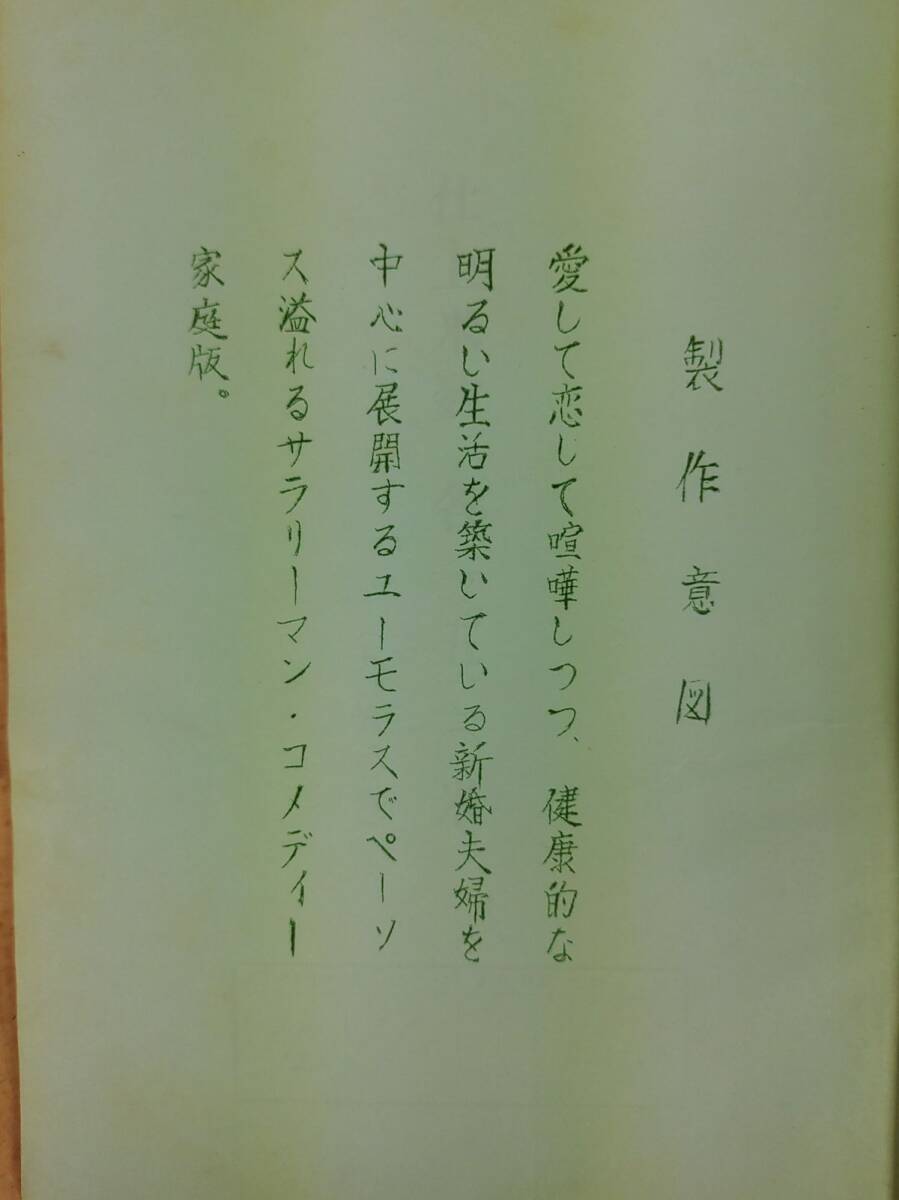 製作意図
愛して恋して喧嘩しつつ、健康的な
明るい生活を築いている新婚夫婦を
中心に展開するユーモラスでペーソ
ス溢れるサラリーマン・コメディー
家庭版。